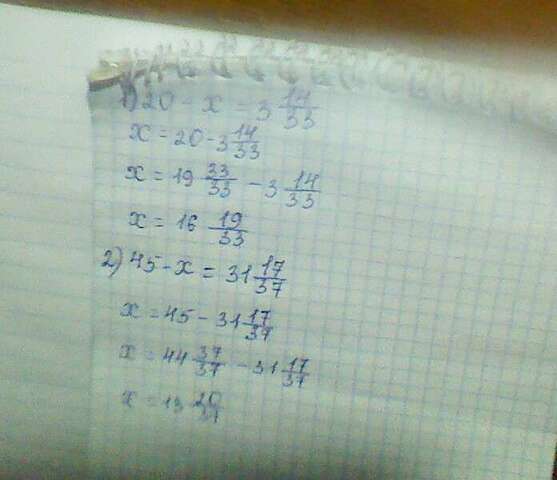 1) 20 - x = 3 14/33
x = 20 - 3 14/33
x = 19 33/33 - 3 14/33
x = 16 19/33
2) 45 - x = 31 17/37
x = 45 - 31 17/37
x = 44 37/37 - 31 17/37
x = 13 20/37